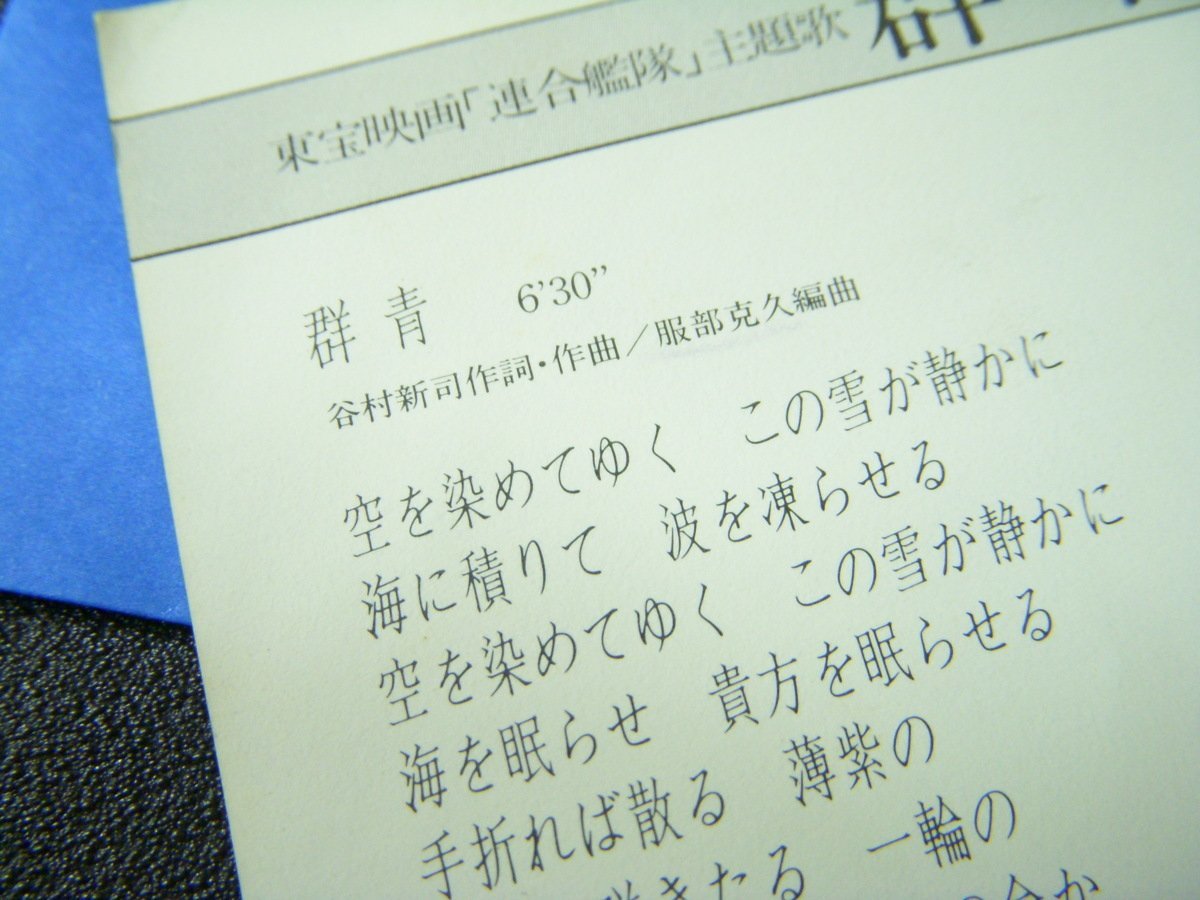 東宝映画「連合艦隊」主題歌 群
群青 6'30"
谷村新司作詞・作曲／服部克久編曲
空を染めてゆく この雪が静かに
海に積りて 波を凍らせる
空を染めてゆく この雪が静かに
海を眠らせ 貴方を眠らせる
手折れば散る 薄紫の
きたる 一輪の